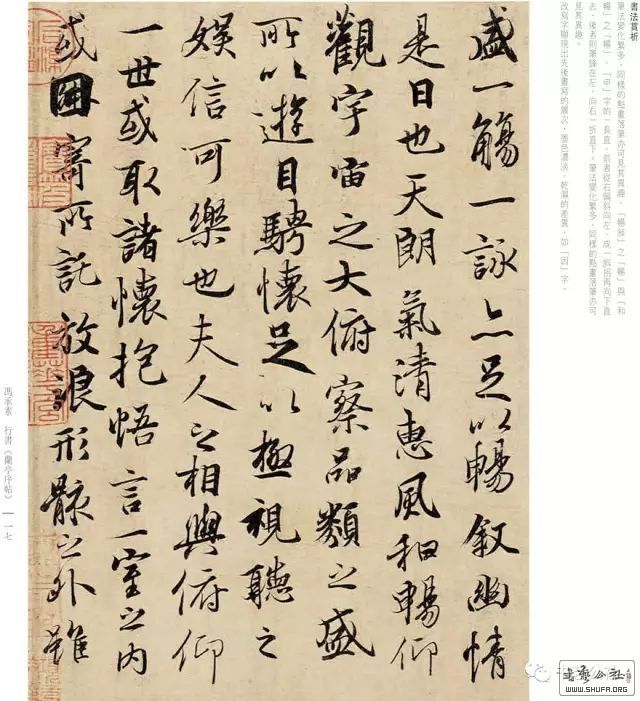 書法賞析
筆法變化繁多，同樣的點畫落筆亦可見其異趣，「暢敘」之「暢」與「和
暢」之「暢」，「申」字的一長直，前者從右偏斜向左，成一斜捺再向下直
去，後者則筆鋒在左，向右一折直下。筆法變化繁多，同樣的點畫落筆亦可
見其異趣。
改寫字顯現出先後書寫的層次，墨色濃淡，乾濕的差異，如「因」字。
盛一觴一詠亦足以暢敘幽情
是日也天朗氣清惠風和暢仰
觀宇宙之大俯察品類之盛
所以遊目騁懷足以極視聽之
娛信可樂也夫人之相與俯仰
一世或取諸懷抱悟言一室之內
或因寄所託放浪形骸之外雖
馮承素 行書《蘭亭序帖》 一七
WWW.SHUFA.ORG